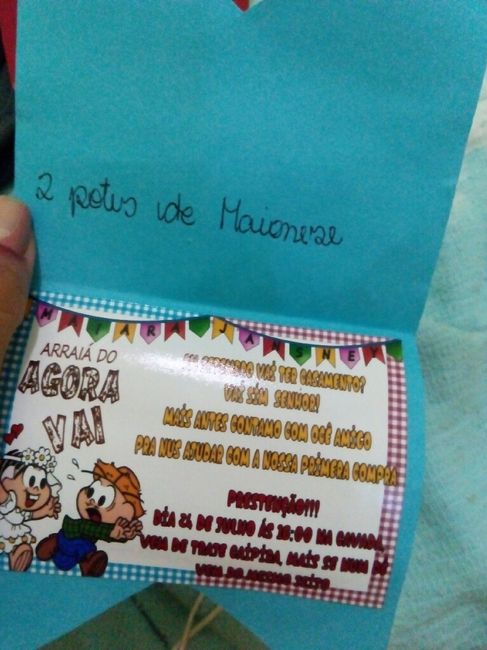 2 potes de Maionese
MAIARA JANSNEY
ARRAIÁ DO
AGORA
VAI
CUMPADO VAI TER CASAMENTO?
VAI SIM SENHOR!
MAIS ANTES CONTAMO COM OCÊ AMIGO
PRA NUS AJUDAR COM A NOSSA PRIMERA COMPRA
PRESTENÇÃO!!!
DIA 24 DE JULHO ÁS 18:00 NA
VEIM DE TRAJE CAIPIRA, MAIS SE NUM DÉ
VEIM DO MESMO JEITO